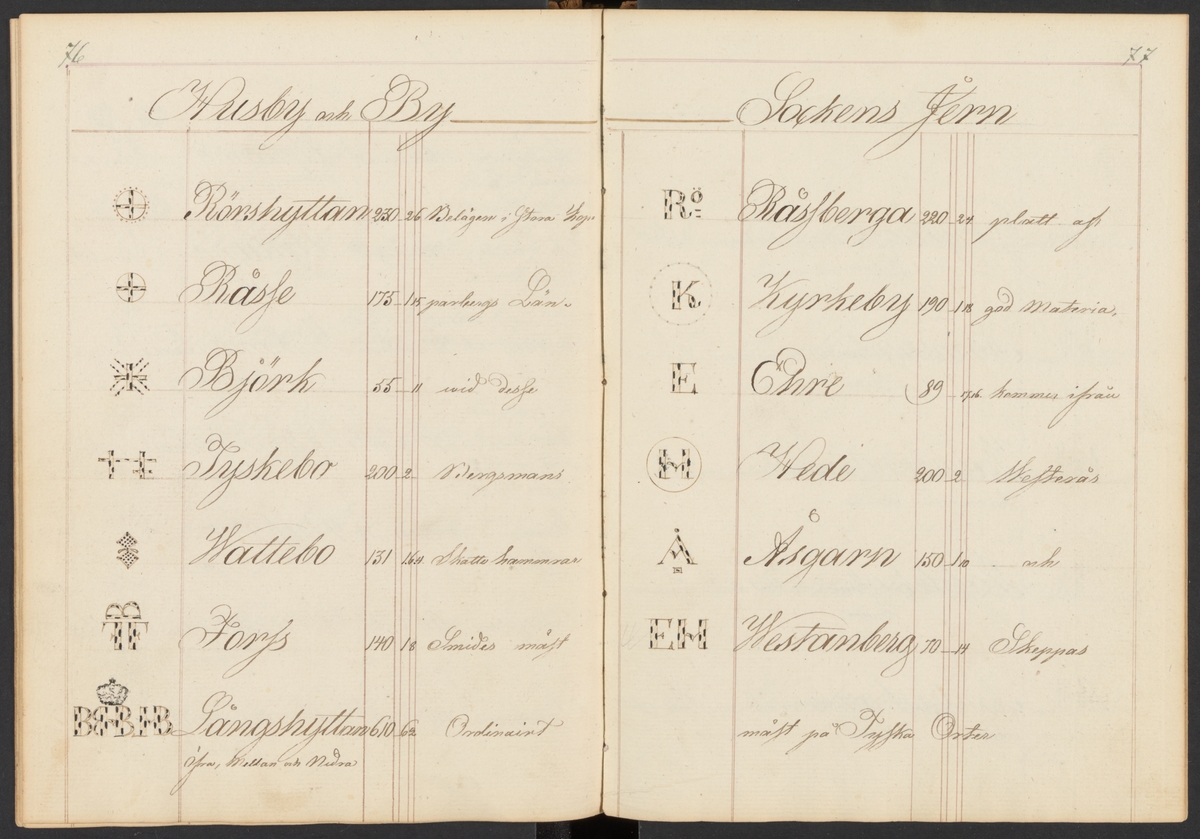 76
Husby och By
Rörshyttan 230 26 Belägen i Stora Kop=
Råsse 175 1 15 parbergs Län.
Björk 55 11 wid desse
Tyskebo 200 2 Bergsmans
Wattebo 131 1 6 4 Skatte hamrar
Forss 140 1 8 Smides mäst
Långshyttan 610 6 2 Ordinairt
öfra, Mellan och Nedra
77
Sockens Jern
Rö Råssberga 220 2 4 platt af
K Kyrkeby 190 1 18 god Materia.
E Ehre 89 17 16 kommer ifrån
H Hede 200 2 Westerås
Å Åsgarn 150 1 10 och
EH Westanberg 70 14 Skeppas
mäst på Tyska Orter